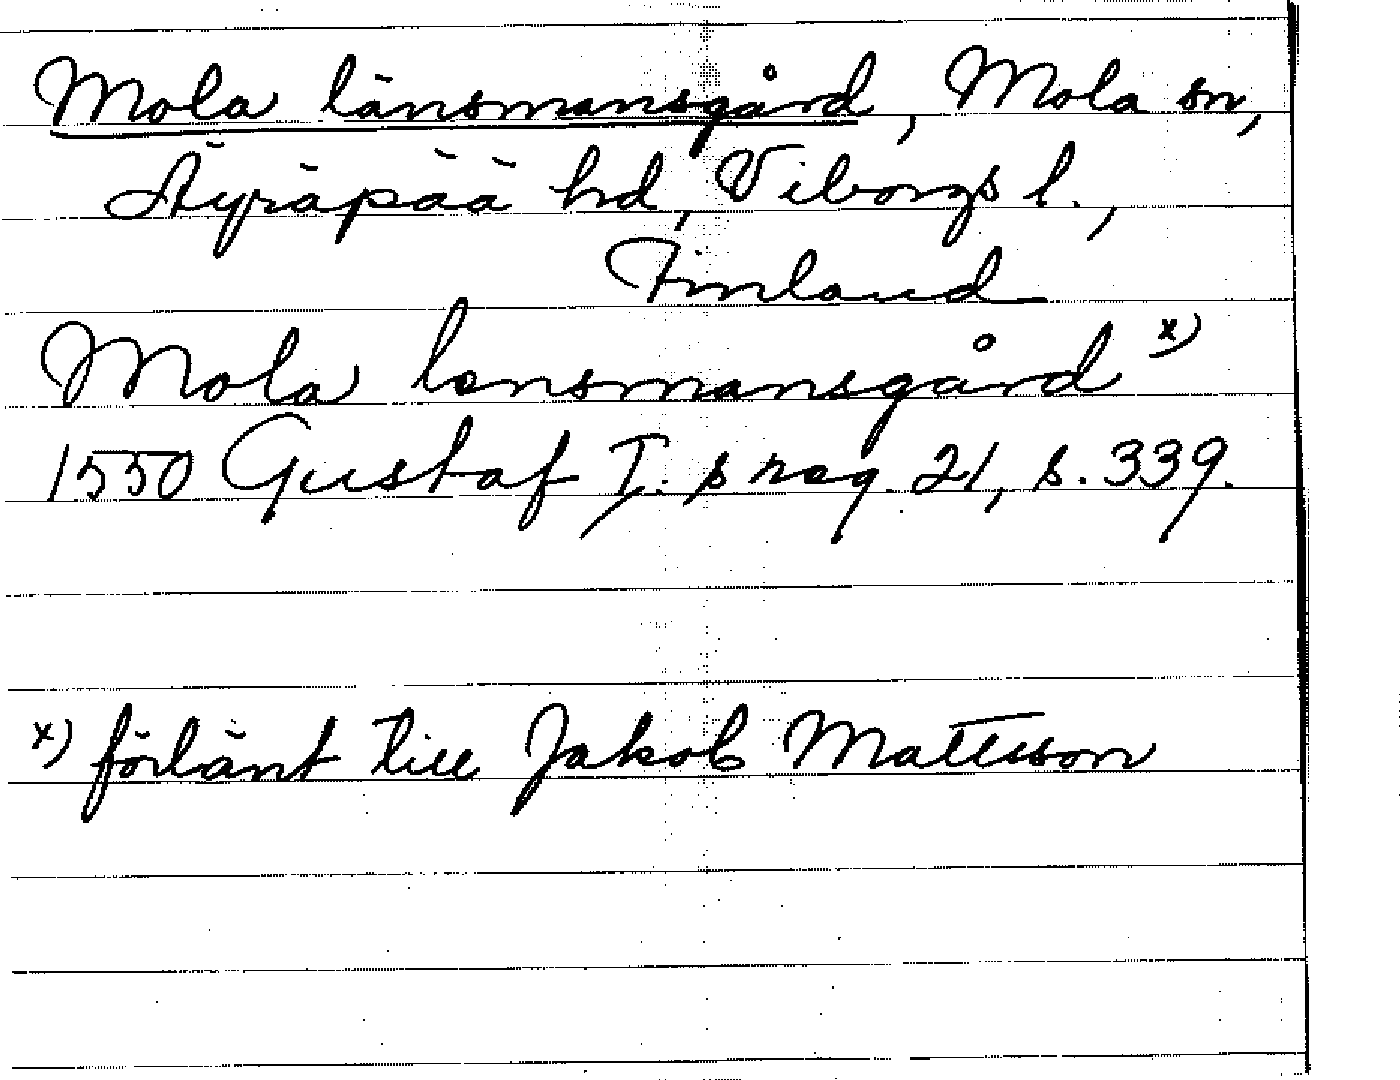 Mola länsmansgård, Mola sn,
Äyräpää hd, Viborgs l.,
Finland
Mola lensmansgård x)
1550 Gustaf I:s reg 21, s. 339.
x) förlänt till Jakob Mattsson